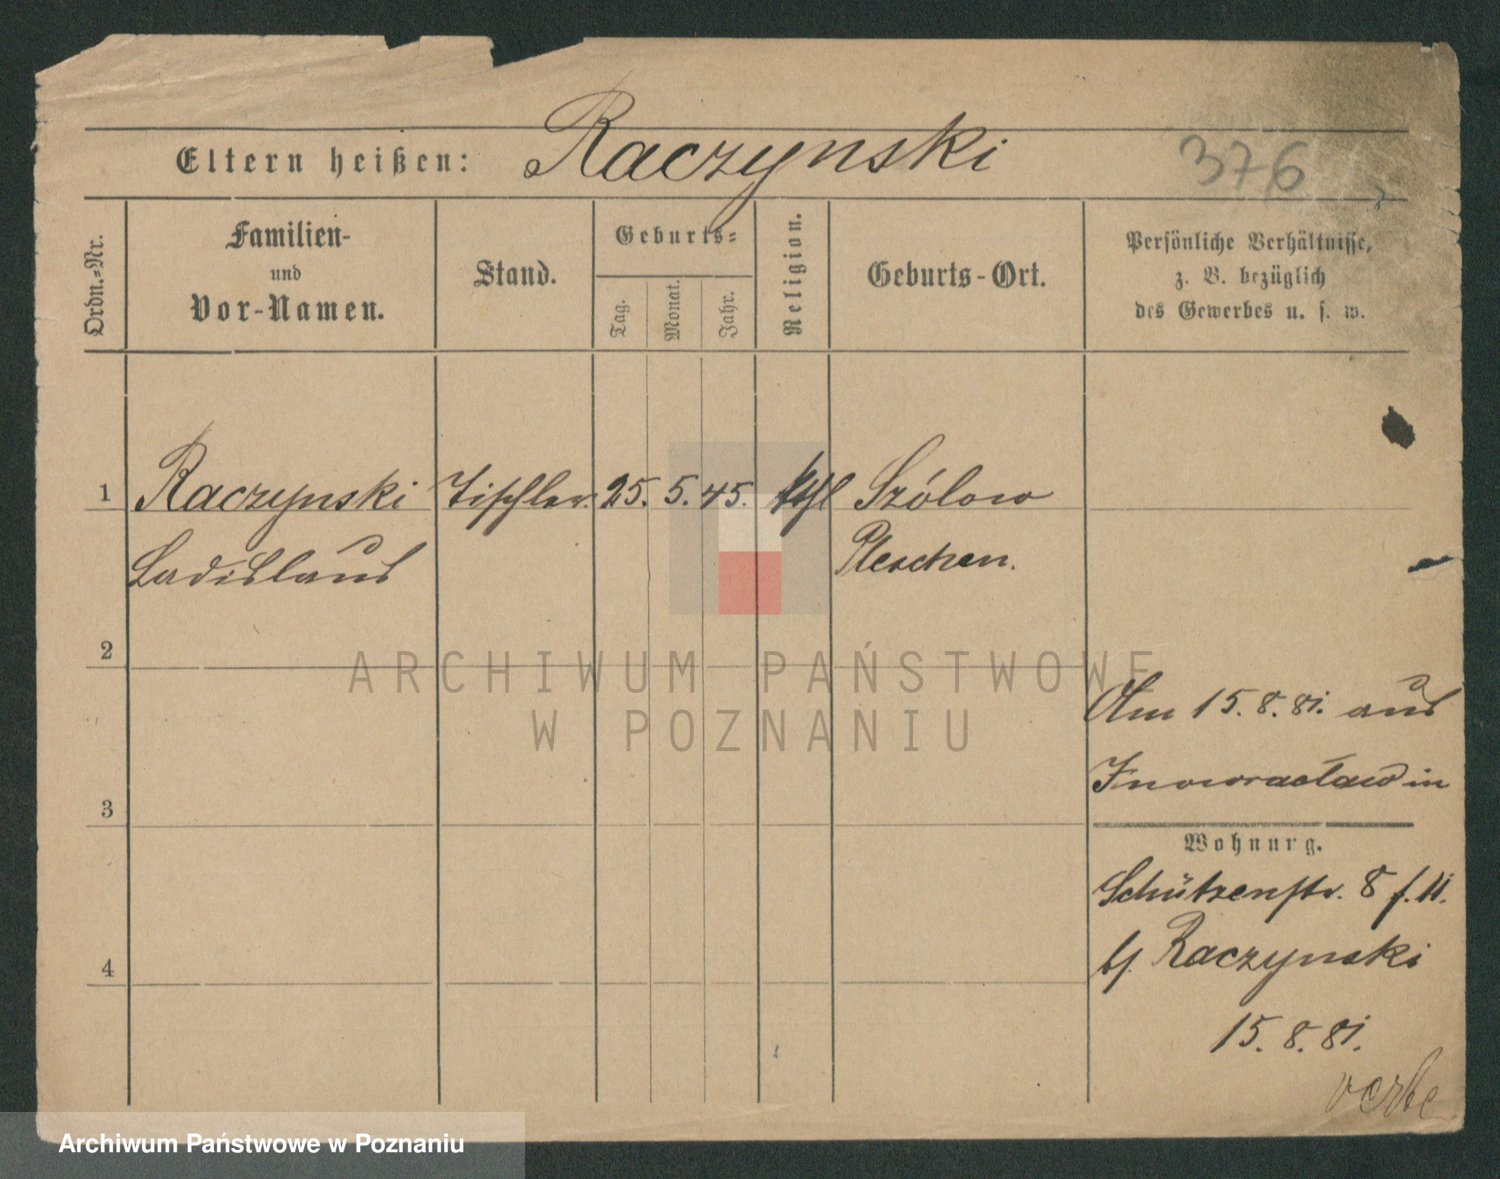 Eltern heißen: Raczynski
376
Ordn.-Nr.
Familien-
und
Vor-Namen.
Stand.
Geburts-
Tag.
Monat.
Jahr.
Religion.
Geburts-Ort.
Persönliche Verhältnisse,
z. B. bezüglich
des Gewerbes u. s. w.
1 Raczynski Tischler. 25. 5. 45. kthl Szólow
Ladislaus Pleschen.
2
ARCHIWUM PAŃSTWOWE
W POZNANIU
Am 15.8.81. aus
Inowracław in
3
Wohnung.
Schützenstr. 8 f. II.
b/. Raczynski
4
15. 8. 81.
Archiwum Państwowe w Poznaniu